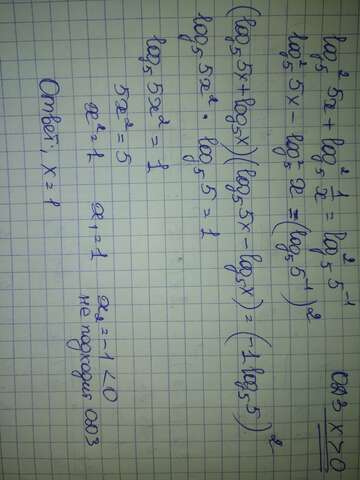 ОДЗ x > 0
log₅² 5x + log₅² 1/x = log₅² 5⁻¹
log₅² 5x − log₅² x = (log₅ 5⁻¹)²
(log₅ 5x + log₅ x)(log₅ 5x − log₅ x) = (−1 log₅ 5)²
log₅ 5x² · log₅ 5 = 1
log₅ 5x² = 1
5x² = 5
x² = 1 x₁ = 1 x₂ = −1 < 0
не подходит ОДЗ
Ответ: x = 1